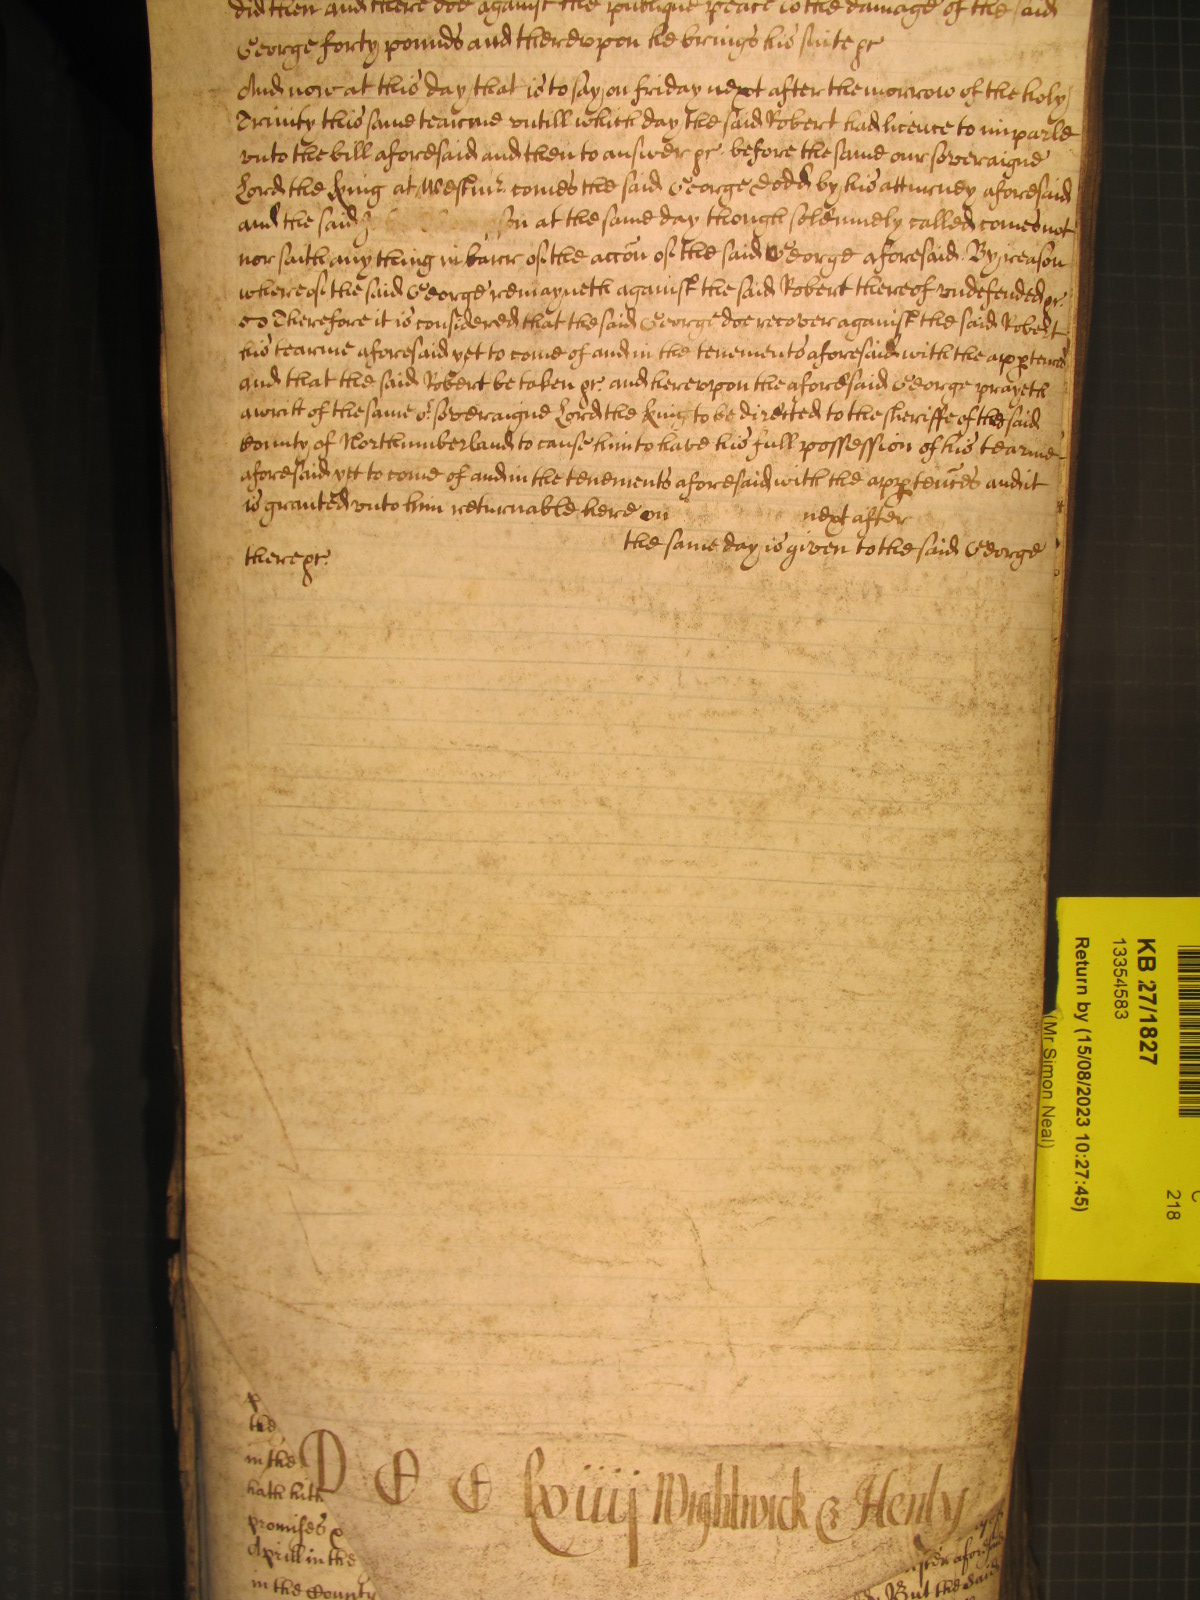 did then and there doe against the publique peace to the damage of the said
George forty pounds and thereupon he brings his suite &c
And now at this day that is to say on friday next after the morrow of the holy
Trinity this same tearme untill which day the said Robert had licence to imparle
unto the bill aforesaid and then to answer &c. before the same our soveraigne
Lord the King at Westmr. comes the said George Dodd by his atturney aforesaid
and the said on at the same day though solemnely called comes not
nor saith any thing in barr of the accon of the said George aforesaid. By reason
whereof the said George remayneth against the said Robert thereof undefended &c.
Therefore it is considered that the said George doe recover against the said Robert
his tearme aforesaid yet to come of and in the tenements aforesaid with the apptences
and that the said Robert be taken &c. and hereupon the aforesaid George prayeth
a writt of the same or. soveraigne Lord the King to be directed to the sheriffe of the said
County of Northumberland to cause him to have his full possession of his tearme
aforesaid yet to come of and in the tenements aforesaid with the apptences and it
is granted unto him returnable here on next after
the same day is given to the said George
there &c.
the
in the
hath hith
promises
Aprill in the
in the County
D C C lxiiij Wightwick & Henly
But the said
KB 27/1827
13354583
Return by (15/08/2023 10:27:45)
(Mr Simon Neal)
218